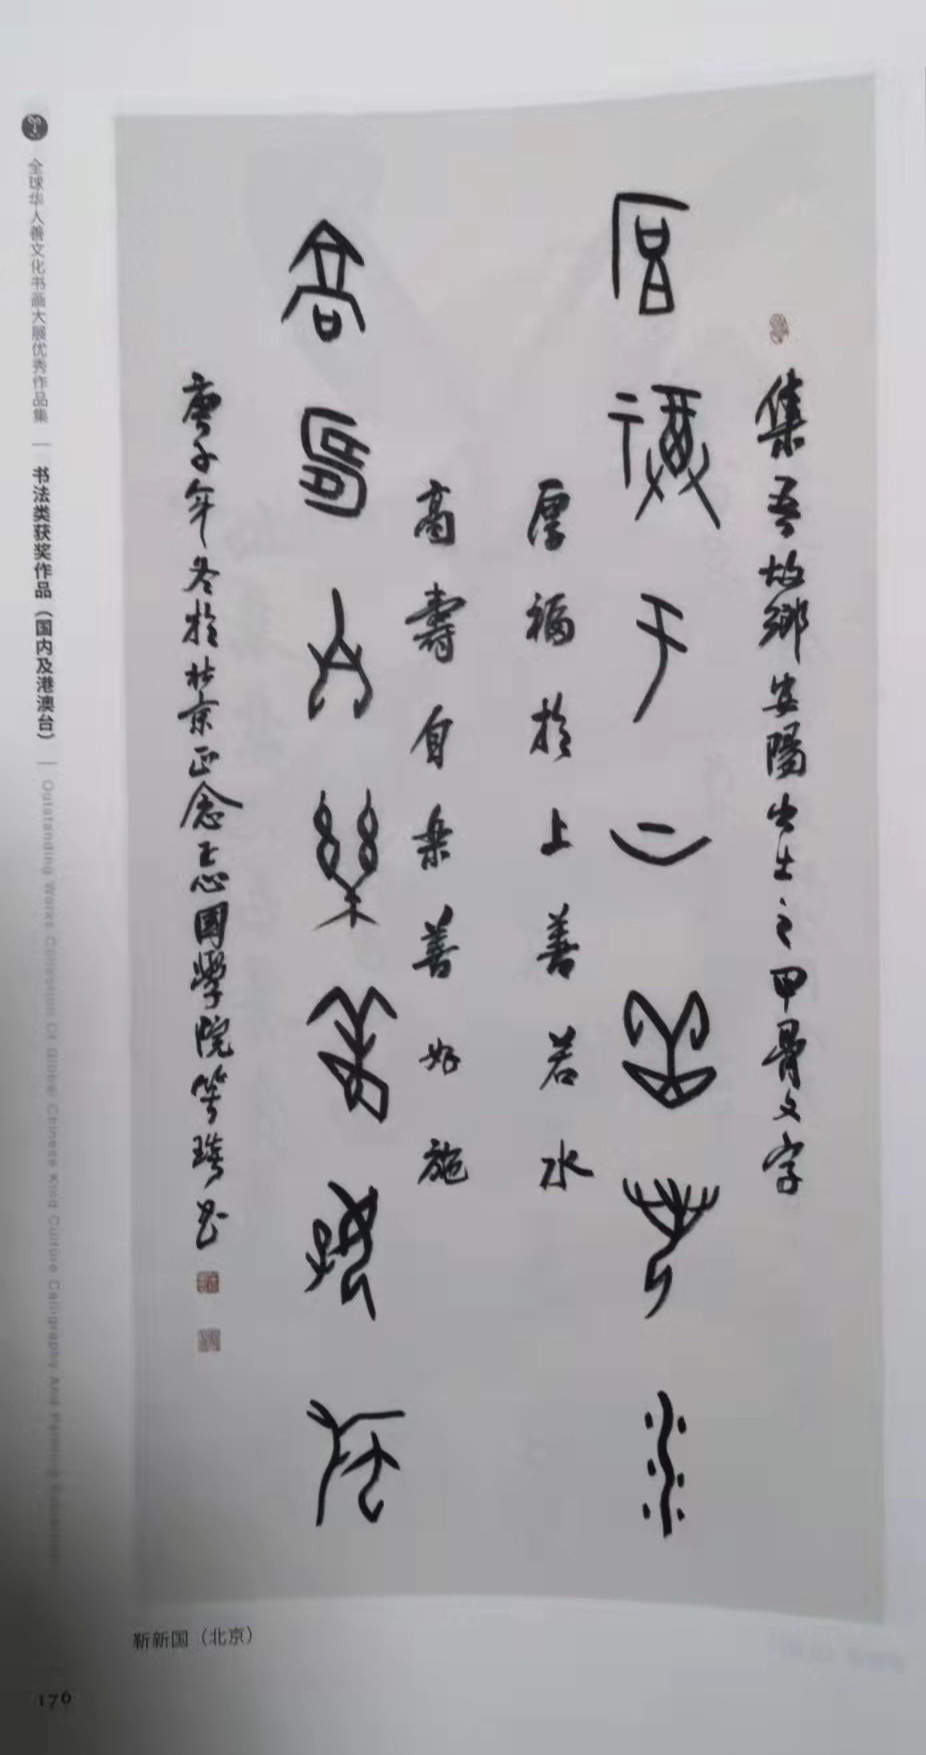 集吾故鄉安陽出土之甲骨文字
厚福於上善若水
高壽自樂善好施
庚子年冬於北京正念正志國學院
靳新国（北京）
全球华人善文化书画大展优秀作品集｜书法类获奖作品（国内及港澳台）｜Outstanding Works Collection Of Global Chinese Kind Culture Calligraphy And Painting Exhibition
176